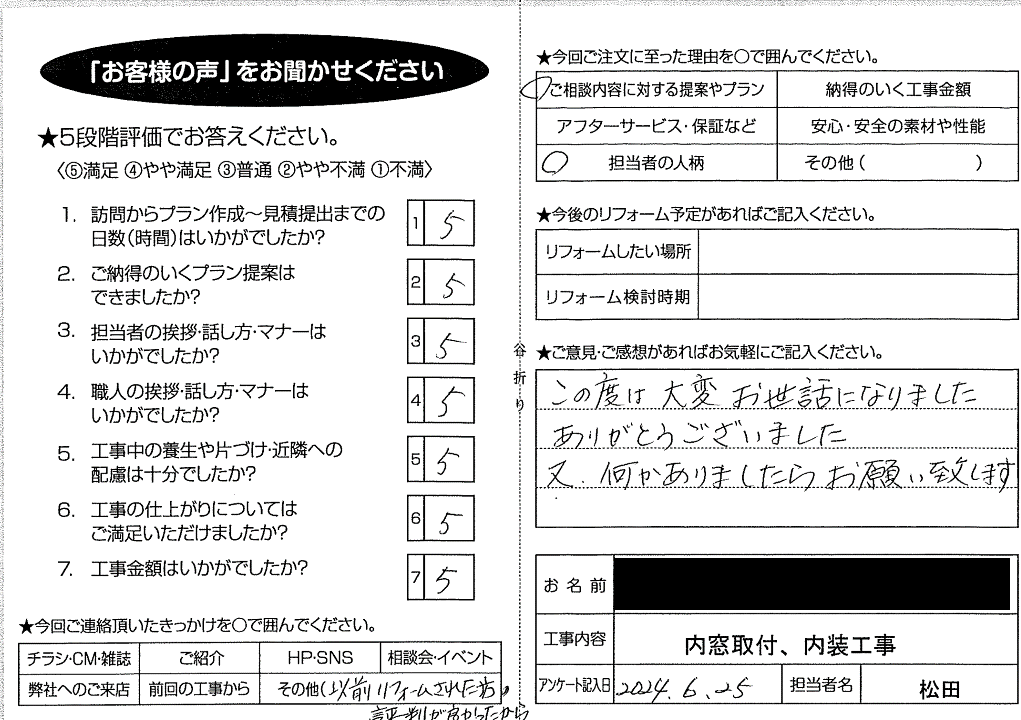 「お客様の声」をお聞かせください
★5段階評価でお答えください。
〈⑤満足 ④やや満足 ③普通 ②やや不満 ①不満〉
1. 訪問からプラン作成〜見積提出までの
日数(時間)はいかがでしたか?
1 5
2. ご納得のいくプラン提案は
できましたか?
2 5
3. 担当者の挨拶・話し方・マナーは
いかがでしたか?
3 5
4. 職人の挨拶・話し方・マナーは
いかがでしたか?
4 5
5. 工事中の養生や片づけ・近隣への
配慮は十分でしたか?
5 5
6. 工事の仕上がりについては
ご満足いただけましたか?
6 5
7. 工事金額はいかがでしたか?
7 5
★今回ご連絡頂いたきっかけを○で囲んでください。
チラシ・CM・雑誌 ご紹介 HP・SNS 相談会・イベント
弊社へのご来店 前回の工事から その他(以前リフォームされた方の
評判が良かったから
谷折り
★今回ご注文に至った理由を○で囲んでください。
ご相談内容に対する提案やプラン 納得のいく工事金額
アフターサービス・保証など 安心・安全の素材や性能
担当者の人柄 その他( )
★今後のリフォーム予定があればご記入ください。
リフォームしたい場所
リフォーム検討時期
★ご意見・ご感想があればお気軽にご記入ください。
この度は 大変 お世話になりました
ありがとうございました
又、何かありましたら お願い致します
お名前
工事内容 内窓取付、内装工事
アンケート記入日 2024.6.25 担当者名 松田